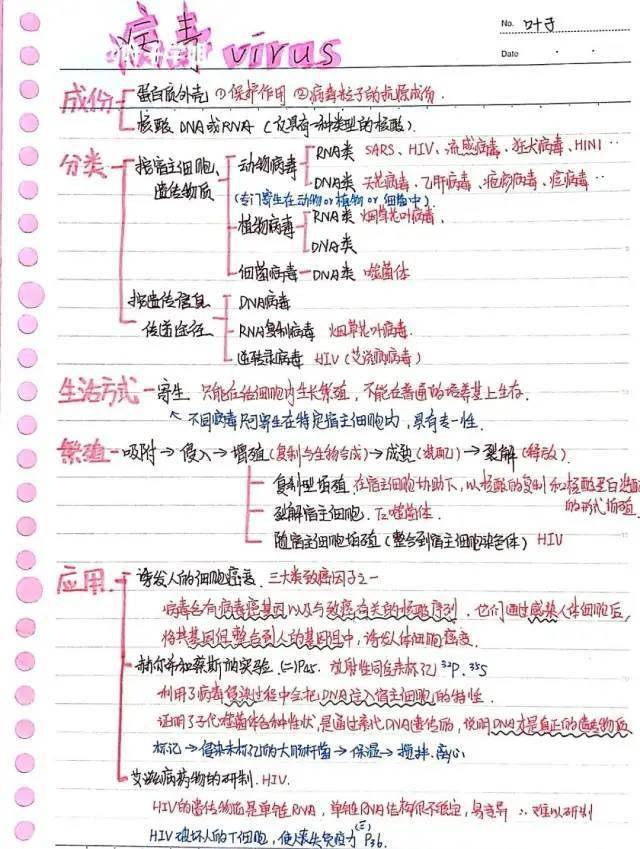 病毒 virus
No. 叶子
Date
成份 蛋白质外壳 ①保护作用 ②病毒粒子的抗原成份.
核酸 DNA或RNA (仅具有一种类型的核酸).
分类 按宿主细胞、 动物病毒 RNA类 SARS、HIV、流感病毒、狂犬病毒、H1N1 ··
遗传物质 DNA类 天花病毒、乙肝病毒、疱疹病毒、痘病毒 ··
(专门寄生在动物or植物or细菌中)
植物病毒 RNA类 烟草花叶病毒.
DNA类
细菌病毒 — DNA类 噬菌体
按遗传信息 DNA病毒
传递途径 RNA复制病毒 烟草花叶病毒.
逆转录病毒 HIV (艾滋病病毒)
生活方式 — 寄生 只能在活细胞内生长繁殖,不能在普通的培养基上生存.
↖ 不同病毒只寄生在特定宿主细胞内,具有专一性.
繁殖 — 吸附 → 侵入 → 增殖(复制与生物合成) → 成熟(装配) → 裂解(释放).
复制型增殖.在宿主细胞协助下,以核酸的复制和核酸蛋白装配
的形式增殖
裂解宿主细胞. T₂噬菌体.
随宿主细胞增殖(整合到宿主细胞染色体) HIV
应用 诱发人的细胞癌变. 三大类致癌因子之一
病毒含有病毒癌基因以及与致癌有关的核酸序列. 它们通过感染人体细胞后,
将其基因组整合到人的基因组中,诱发人体细胞癌变.
赫尔希和蔡斯的实验.(二)P45. 放射性同位素标记 ³²P. ³⁵S
利用了病毒侵染过程中会把DNA注入宿主细胞的特性.
证明了子代噬菌体各种性状,是通过亲代DNA遗传的,说明DNA才是真正的遗传物质
标记 → 侵染未标记的大肠杆菌 → 保温 → 搅拌.离心
艾滋病药物的研制. HIV.
HIV的遗传物质是单链RNA,单链RNA结构很不稳定,易变异 ∴ 难以研制
HIV破坏人的T细胞,使人丧失免疫力 (三)P36.